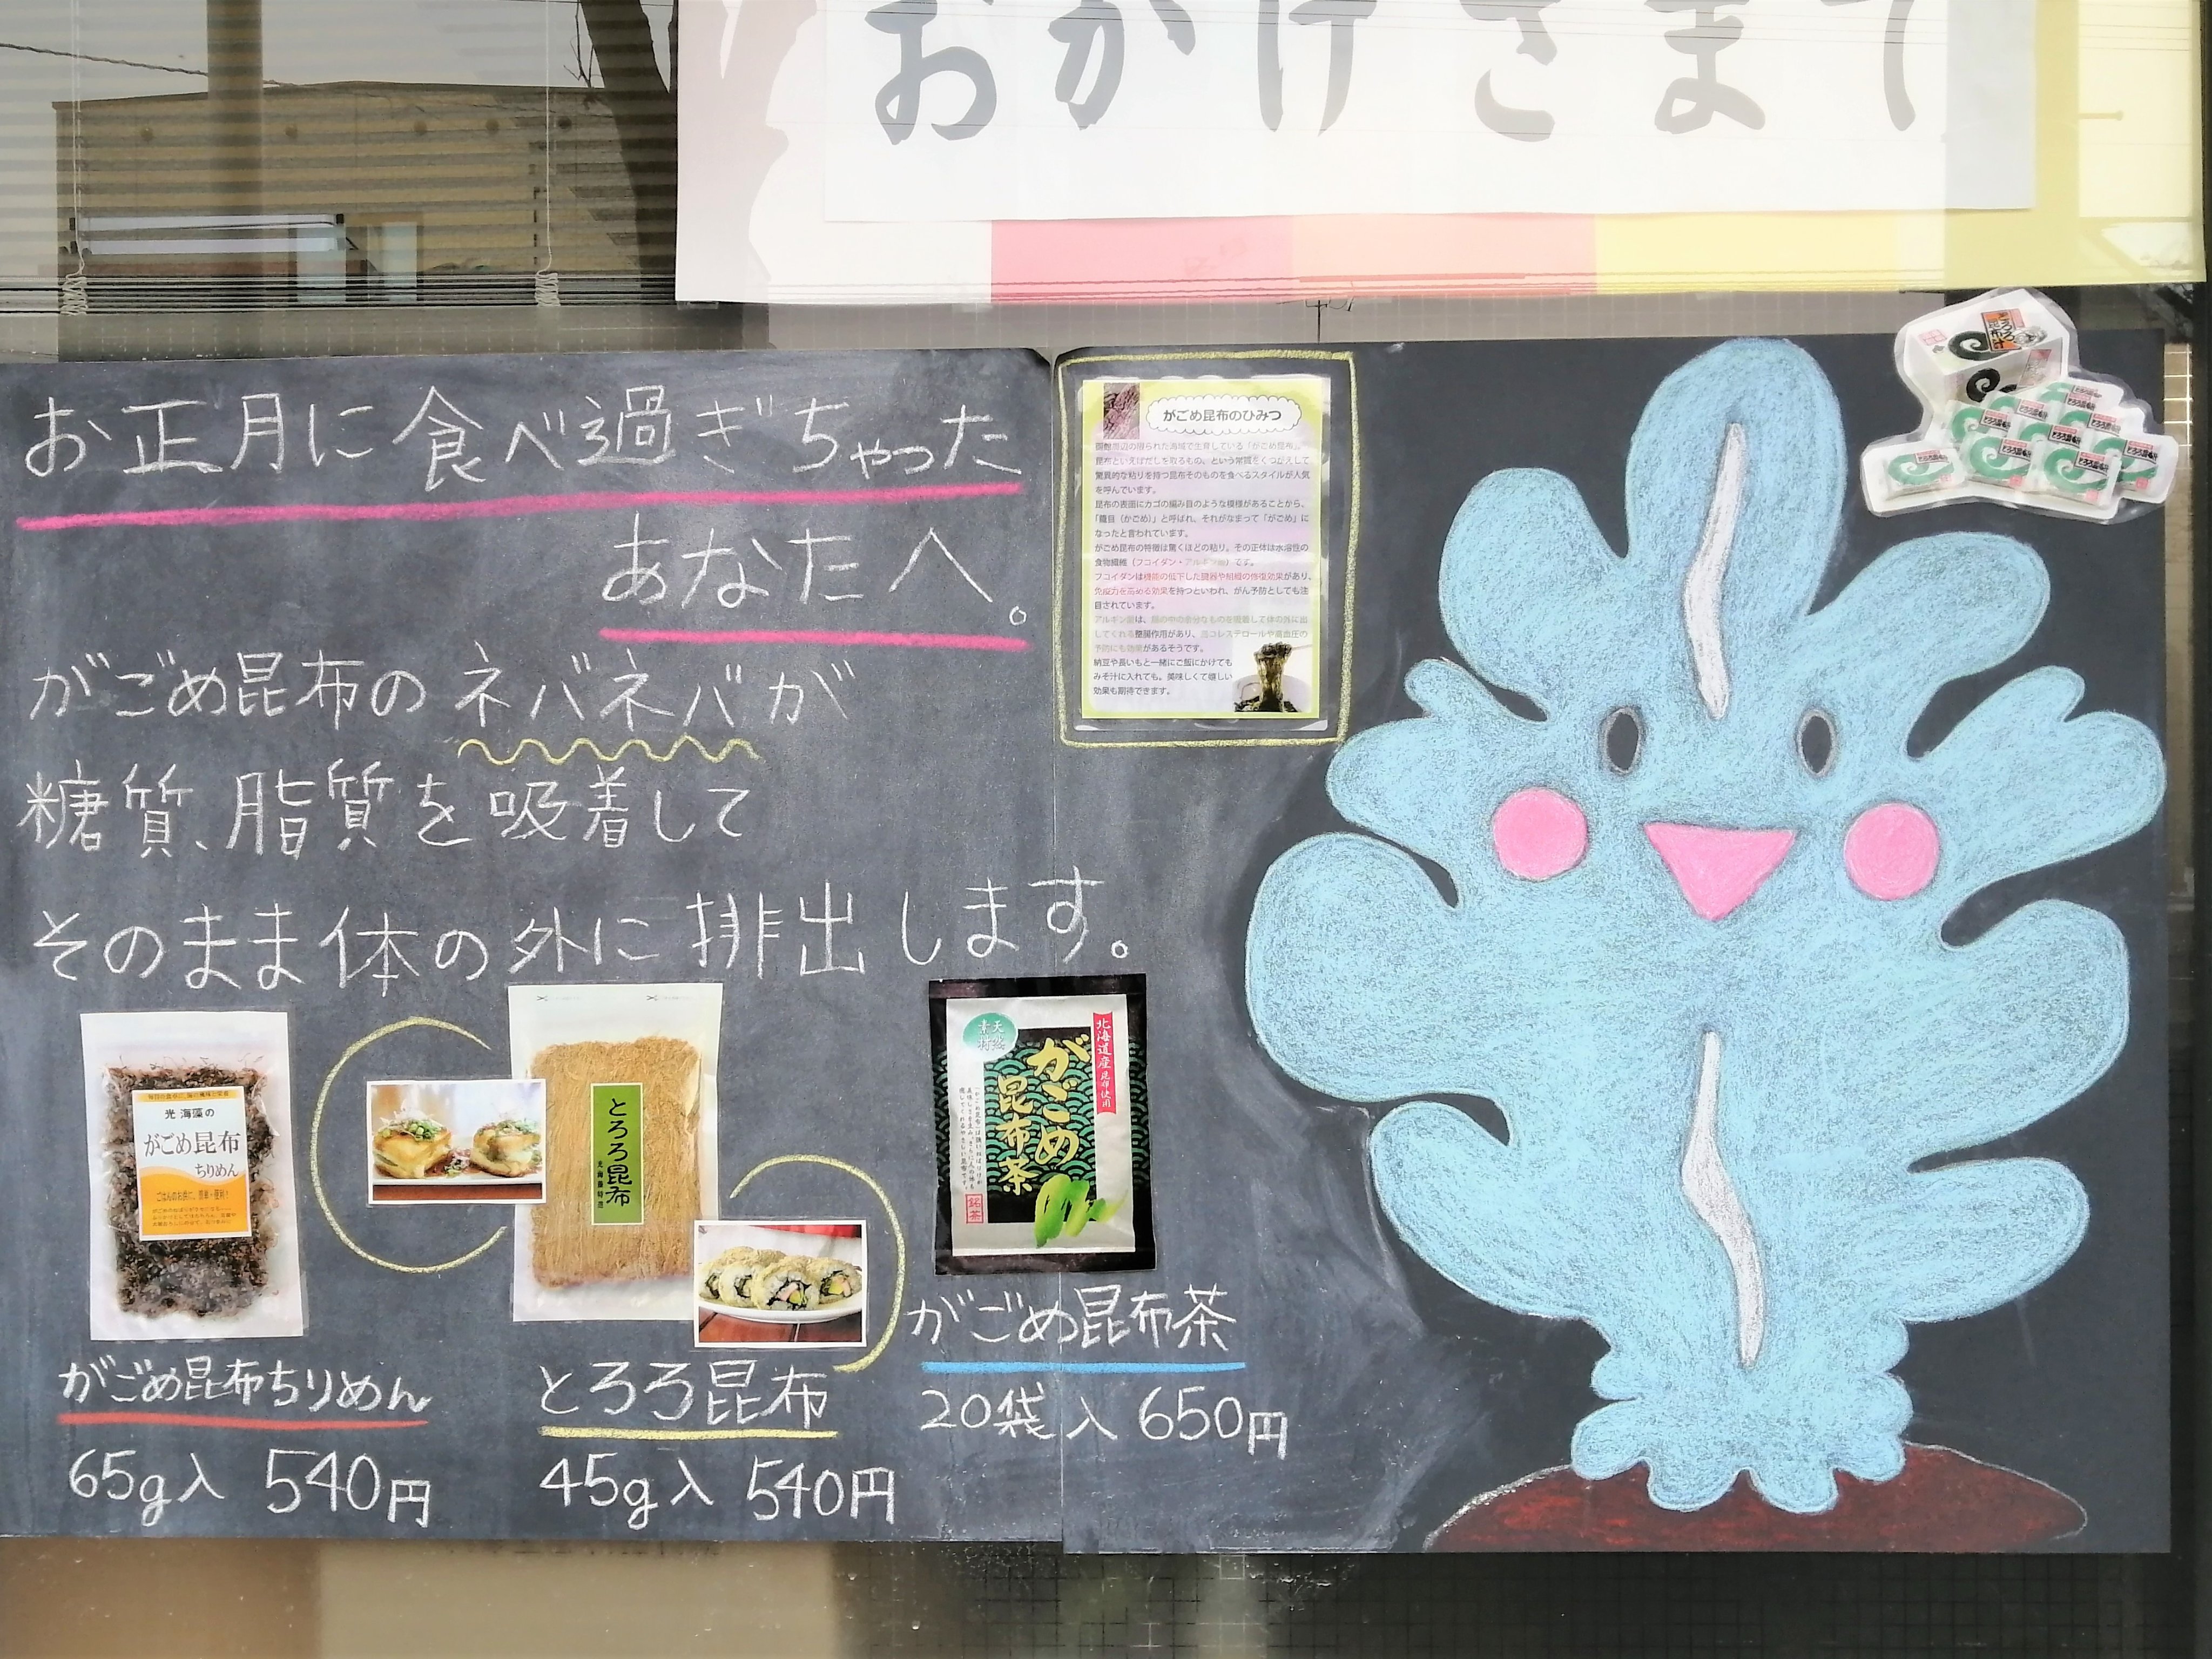 おかげさまで
お正月に食べ過ぎちゃった
あなたへ。
がごめ昆布のネバネバが
糖質、脂質を吸着して
そのまま体の外に排出します。
がごめ昆布のひみつ
函館周辺の限られた海域で生育している「がごめ昆布」。
昆布といえばだしを取るもの、という常識をくつがえして
驚異的な粘りを持つ昆布そのものを食べるスタイルが人気
を呼んでいます。
昆布の表面にカゴの編み目のような模様があることから、
「籠目（かごめ）」と呼ばれ、それがなまって「がごめ」に
なったと言われています。
がごめ昆布の特徴は驚くほどの粘り。その正体は水溶性の
食物繊維（フコイダン・アルギン酸）です。
フコイダンは機能の低下した臓器や組織の修復効果があり、
免疫力を高める効果を持つといわれ、がん予防としても注
目されています。
アルギン酸は、腸の中の余分なものを吸着して体の外に出
してくれる整腸作用があり、高コレステロールや高血圧の
予防にも効果があるそうです。
納豆や長いもと一緒にご飯にかけても
みそ汁に入れても。美味しくて嬉しい
効果も期待できます。
とろろ昆布汁
光海藻の
がごめ昆布
ちりめん
ごはんのお供に、簡単・便利！
とろろ昆布
光海藻特選
天然
素材
北海道産昆布使用
がごめ
昆布茶
銘茶
がごめ昆布ちりめん
65g入 540円
とろろ昆布
45g入 540円
がごめ昆布茶
20袋入 650円